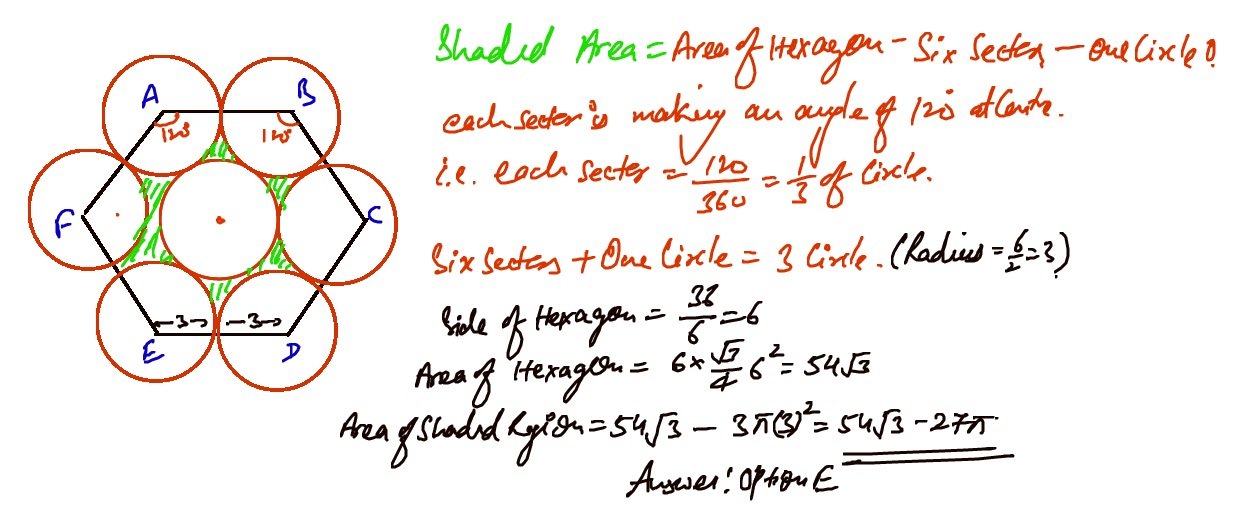 Shaded Area = Area of Hexagon - Six Sectors - One Circle
each sector is making an angle of 120° at Centre.
i.e. each Sector = 120/360 = 1/3 of Circle.
Six Sectors + One Circle = 3 Circle. (Radius = 6/2 = 3)
Side of Hexagon = 36/6 = 6
Area of Hexagon = 6 × √3/4 6² = 54√3
Area of Shaded Region = 54√3 - 3π(3)² = 54√3 - 27π
Answer: Option E
A
B
120°
120°
F
C
3
3
E
D